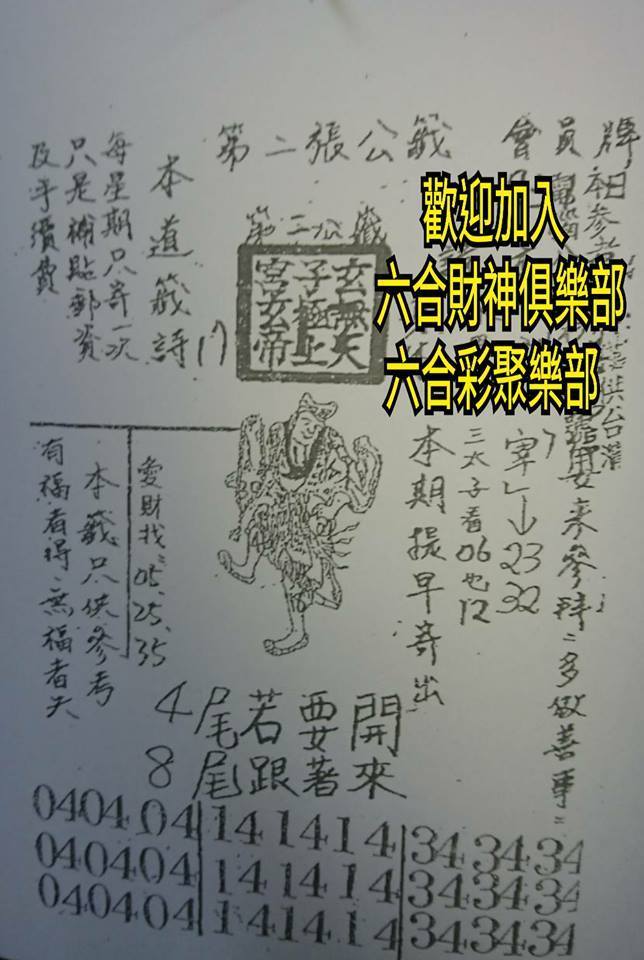 第二張公籤
會員
牌
本日參考
歡迎加入
六合財神俱樂部
六合彩聚樂部
供台灣
要來參拜：多做善事：
宰
23
32
三太子看06也12
本期提早寄出
第二公籤
玄無天
子極上
宮玄帝
本道籤詩
17
每星期只寄一次
只是補貼郵資
及手續費
愛財找：05.25.35
本籤只供參考
有福者得：無福者失
4尾若要開
8尾跟著來
040404 141414 343434
040404 141414 343434
040404 141414 343434